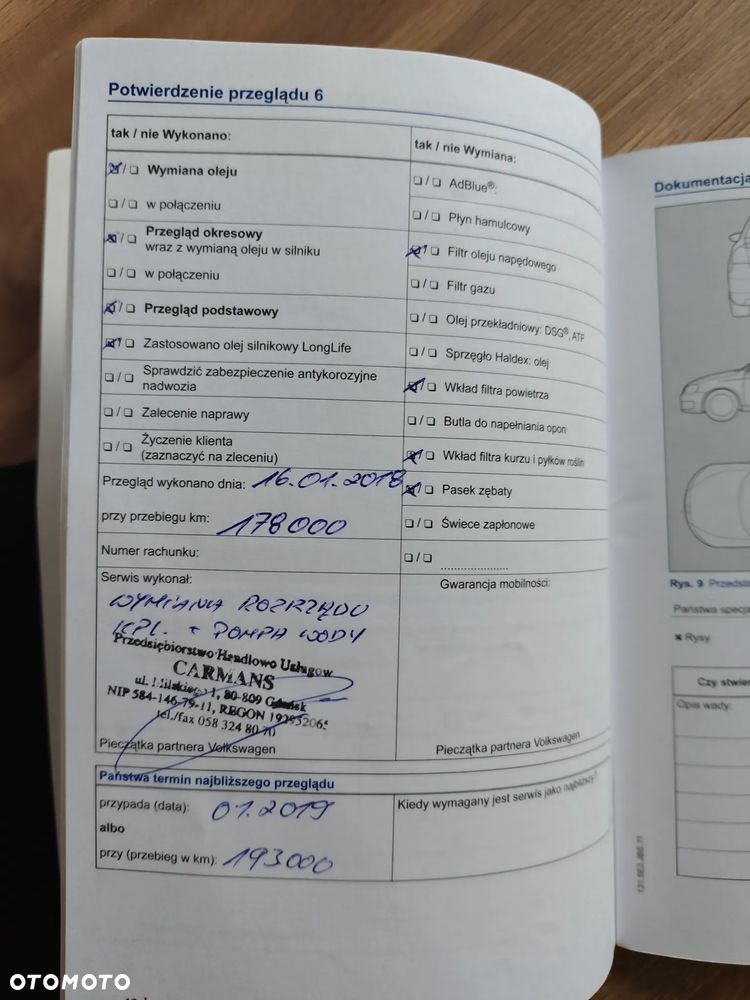 Potwierdzenie przeglądu 6
tak / nie Wykonano:
☒/☐ Wymiana oleju
☐/☐ w połączeniu
☒/☐ Przegląd okresowy
wraz z wymianą oleju w silniku
☐/☐ w połączeniu
☒/☐ Przegląd podstawowy
☒/☐ Zastosowano olej silnikowy LongLife
☐/☐ Sprawdzić zabezpieczenie antykorozyjne
nadwozia
☐/☐ Zalecenie naprawy
☐/☐ Życzenie klienta
(zaznaczyć na zleceniu)
Przegląd wykonano dnia: 16.01.2018
przy przebiegu km: 178000
Numer rachunku:
Serwis wykonał:
WYMIANA ROZRZĄDU
KPL. + POMPA WODY
Przedsiębiorstwo Handlowo Usługow
CARMANS
1, 80-809 Gdańsk
NIP 584-146-79-11, REGON
tel./fax 058 324 80 70
Pieczątka partnera Volkswagen
tak / nie Wymiana:
☐/☐ AdBlue®:
☐/☐ Płyn hamulcowy
☒/☐ Filtr oleju napędowego
☐/☐ Filtr gazu
☐/☐ Olej przekładniowy: DSG®, ATF
☐/☐ Sprzęgło Haldex: olej
☒/☐ Wkład filtra powietrza
☐/☐ Butla do napełniania opon
☒/☐ Wkład filtra kurzu i pyłków roślin
☒/☐ Pasek zębaty
☐/☐ Świece zapłonowe
☐/☐ ....................
Gwarancja mobilności:
Pieczątka partnera Volkswagen
Państwa termin najbliższego przeglądu
przypada (data): 01.2019
albo
przy (przebieg w km): 193000
Kiedy wymagany jest serwis jako najbliższy?
Dokumentacja
Rys. 9 Przedsta
Państwa specja
× Rysy
Czy stwie
Opis wady:
OTOMOTO